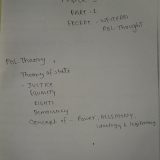 PART - I
POL. Thought
POL. Theory
Theory of state
- JUSTICE
Equality
RIGHTS
Democracy
Concept of - Power, Hegemony,
Ideology & legitimacy